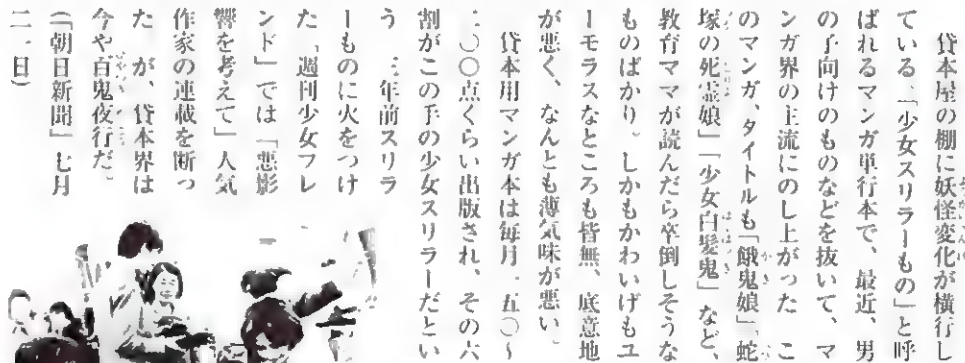 貸本屋の棚に妖怪変化が横行し
ている。「少女スリラーもの」と呼
ばれるマンガ単行本で、最近、男
の子向けのものなどを抜いて、マ
ンガ界の主流にのし上がった　こ
のマンガ、タイトルも「餓鬼娘」「蛇
塚の死霊娘」「少女白髪鬼」など、
教育ママが読んだら卒倒しそうな
ものばかり。しかもかわいげもユ
ーモラスなところも皆無、底意地
が悪く、なんとも薄気味が悪い。
貸本用マンガ本は毎月一五〇〜
二〇〇点くらい出版され、その六
割がこの手の少女スリラーだとい
う　三年前スリラ
ーものに火をつけ
た「週刊少女フレ
ンド」では「悪影
響を考えて」人気
作家の連載を断っ
た　が、貸本界は
今や百鬼夜行だ。
（「朝日新聞」七月
二一日）